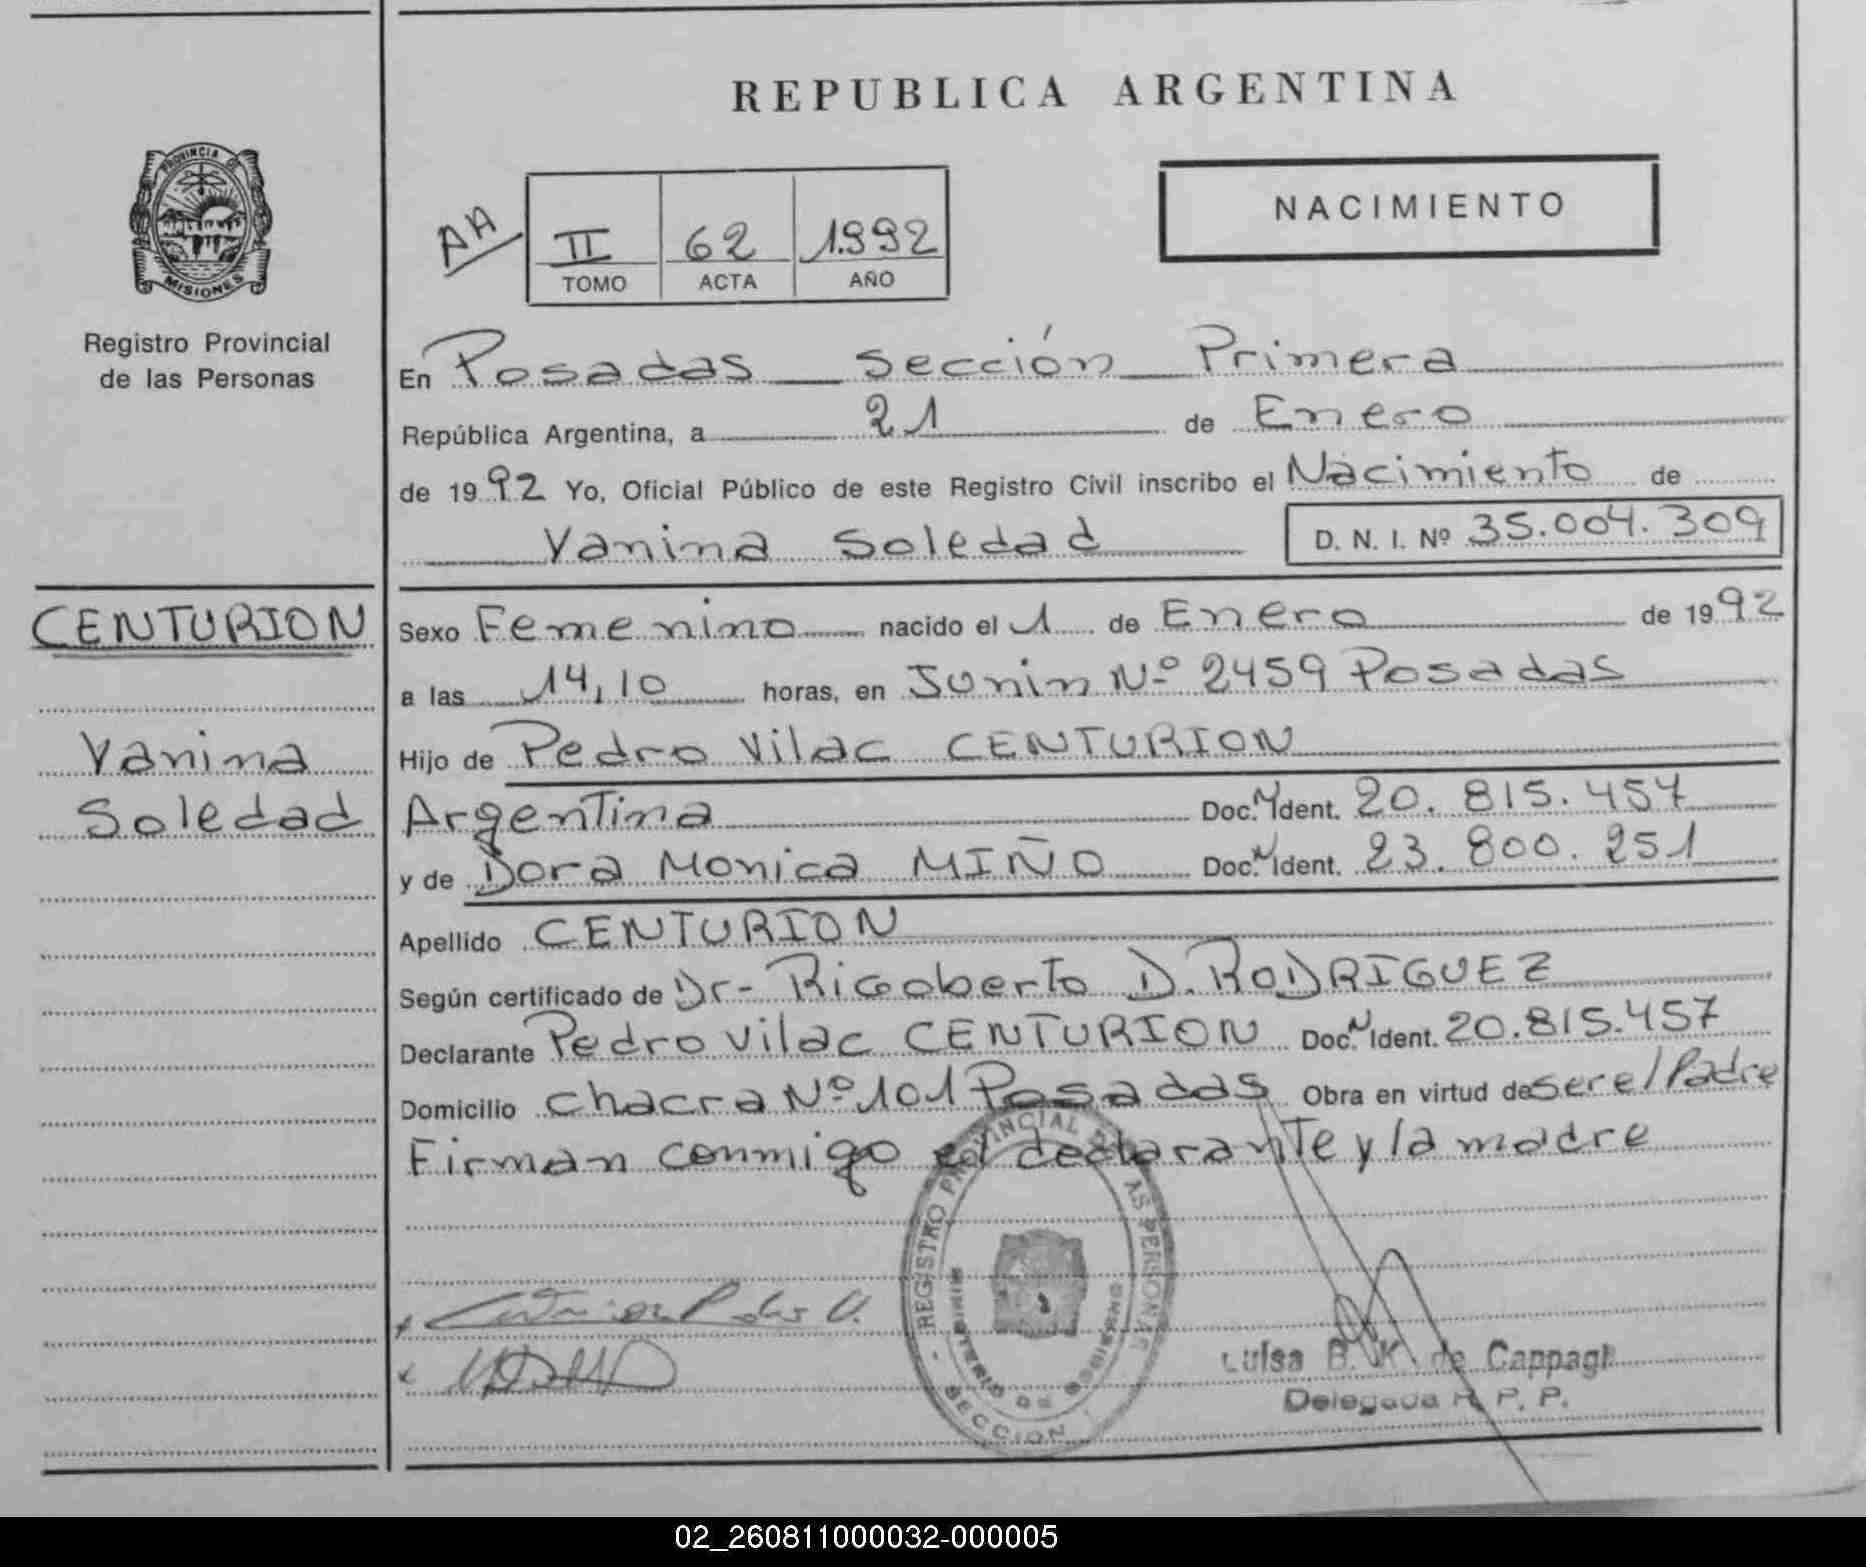 REPUBLICA ARGENTINA
PROVINCIA DE
MISIONES
Registro Provincial
de las Personas
NACIMIENTO
AH
II 62 1.992
TOMO ACTA AÑO
En Posadas Sección Primera
República Argentina, a 21 de Enero
de 1992 Yo, Oficial Público de este Registro Civil inscribo el Nacimiento de
Vanina Soledad D. N. I. Nº 35.004.309
CENTURION
Vanina
Soledad
Sexo Femenino nacido el 1 de Enero de 1992
a las 14,10 horas, en Junin Nº 2459 Posadas
Hijo de Pedro Vilac CENTURION
Argentina Doc. N Ident. 20.815.457
y de Dora Monica MIÑO Doc. N Ident. 23.800.251
Apellido CENTURION
Según certificado de Dr- Rigoberto D. RODRIGUEZ
Declarante Pedro Vilac CENTURION Doc. N Ident. 20.815.457
Domicilio chacra Nº 101 Posadas Obra en virtud de ser el Padre
Firman conmigo el declarante y la madre
REGISTRO PROVINCIAL DE LAS PERSONAS
MINISTERIO DE GOBIERNO
SECCION
Luisa B. K. de Cappagli
Delegada R. P. P.
02_260811000032-000005